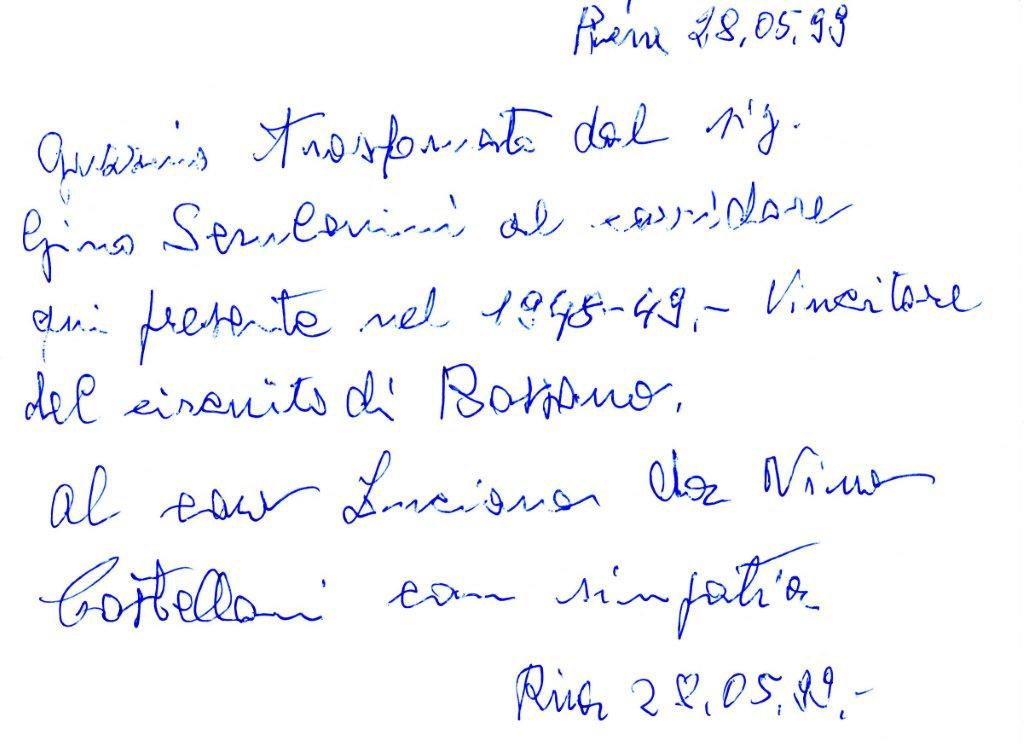 28.05.99
trasformata dal sig.
Gino al corridore
qui presente nel 1948-49.- Vincitore
del circuito di Bolzano.
al caro Luciano da Nino
Castellani con simpatia
Riva 28.05.99.-